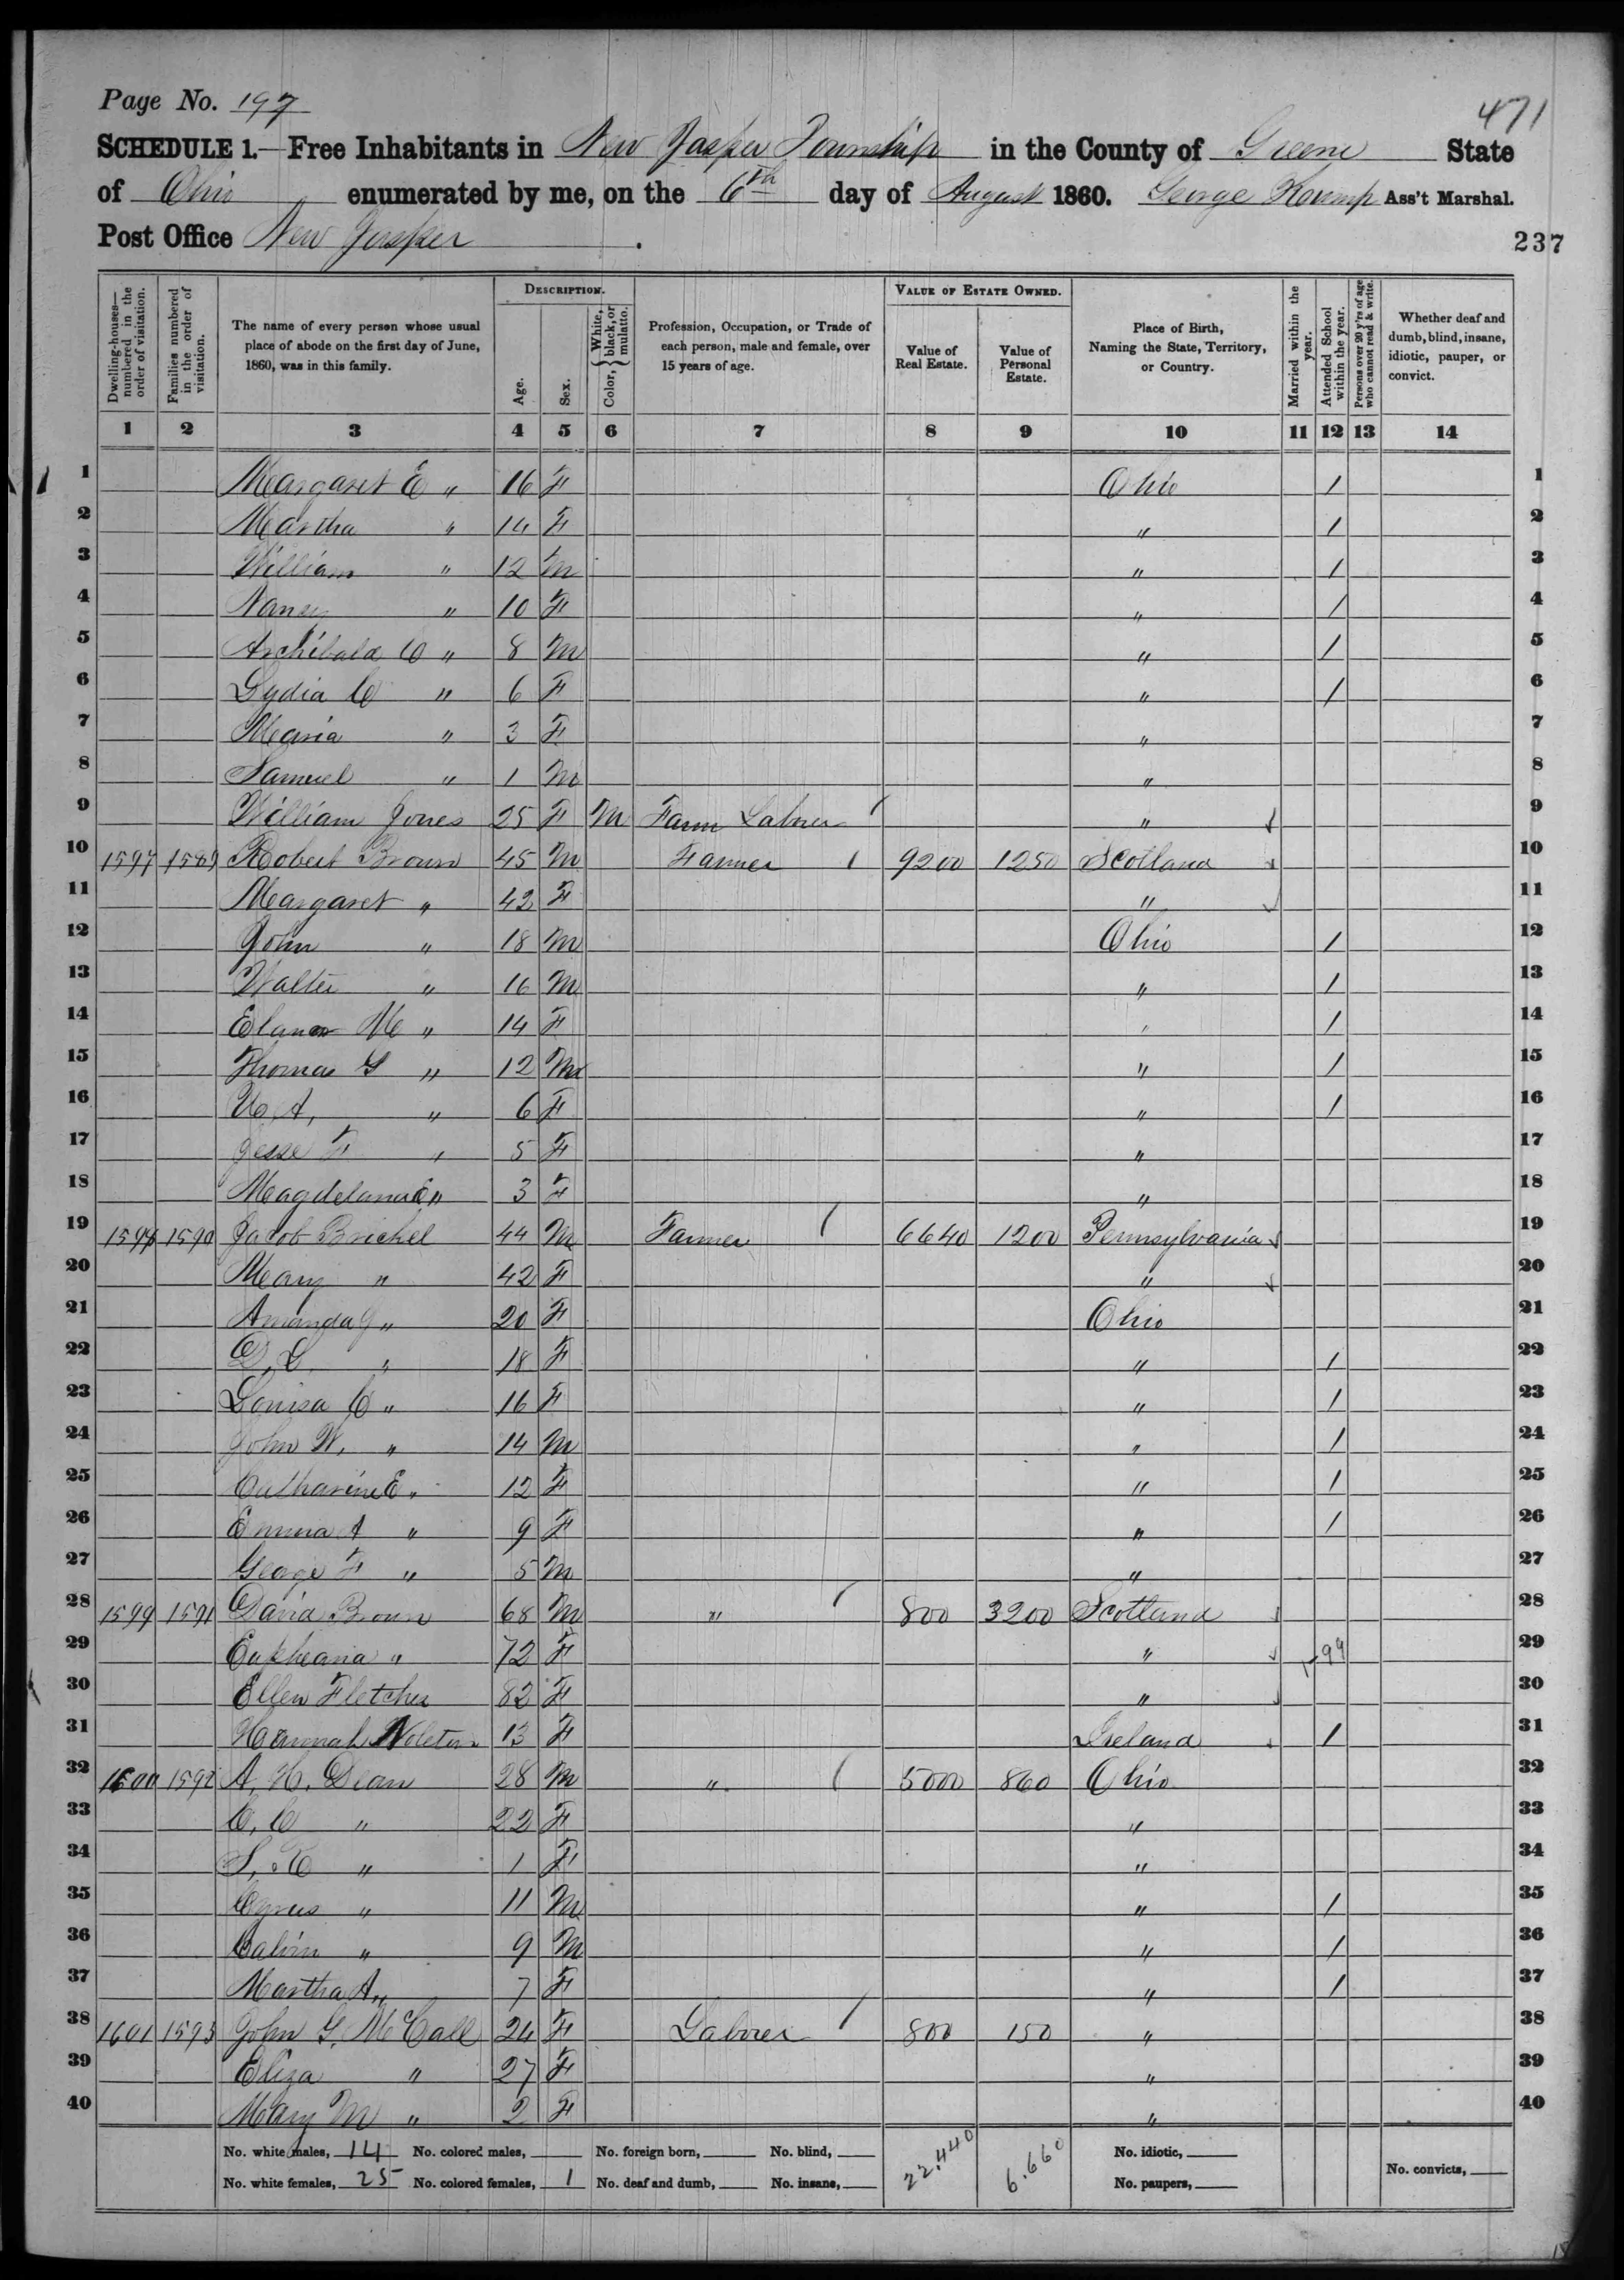 Page No. 197
471
SCHEDULE 1.—Free Inhabitants in New Jasper Township in the County of Greene State
of Ohio enumerated by me, on the 6th day of August 1860. George Kemp Ass't Marshal.
Post Office New Jasper .
237
Dwelling-houses—numbered in the order of visitation. Families numbered in the order of visitation. The name of every person whose usual place of abode on the first day of June, 1860, was in this family. DESCRIPTION. Age. Sex. Color, { White, black, or mulatto. Profession, Occupation, or Trade of each person, male and female, over 15 years of age. VALUE OF ESTATE OWNED. Value of Real Estate. Value of Personal Estate. Place of Birth, Naming the State, Territory, or Country. Married within the year. Attended School within the year. Persons over 20 y'rs of age who cannot read & write. Whether deaf and dumb, blind, insane, idiotic, pauper, or convict.
1 2 3 4 5 6 7 8 9 10 11 12 13 14
1 Margaret E " 16 F Ohio / 1
2 Martha " 14 F " / 2
3 William " 12 M " / 3
4 Nancy " 10 F " / 4
5 Archibald C " 8 M " / 5
6 Lydia C " 6 F " / 6
7 Maria " 3 F " 7
8 Samuel " 1 M " 8
9 William Jones 25 F M Farm Laborer " 9
10 1597 1589 Robert Brown 45 M Farmer 9200 1250 Scotland 10
11 Margaret " 42 F " 11
12 John " 18 M Ohio / 12
13 Walter " 16 M " / 13
14 Elanor M " 14 F " / 14
15 Thomas G " 12 M " / 15
16 A, " 6 F " / 16
17 Jesse F " 5 F " 17
18 " 3 F " 18
19 1598 1590 Jacob Brickel 44 M Farmer 6640 1200 Pennsylvania 19
20 Mary " 42 F " 20
21 Amanda J " 20 F Ohio 21
22 " 18 F " / 22
23 Louisa C " 16 F " / 23
24 John W, " 14 M " / 24
25 Catharine E " 12 F " / 25
26 Emma A " 9 F " / 26
27 George F " 5 M " 27
28 1599 1591 David Brown 68 M " 800 3200 Scotland 28
29 Eupheana " 72 F " 29
30 Ellen Fletcher 82 F " 30
31 Hannah 13 F Ireland / 31
32 1600 1592 A, H, Dean 28 M " 5000 860 Ohio 32
33 C, C " 22 F " 33
34 S, " 1 F " 34
35 Cyrus " 11 M " / 35
36 Calvin " 9 M " / 36
37 Martha A " 7 F " / 37
38 1601 1593 John G, McCall 24 F Laborer 800 150 " 38
39 Eliza " 27 F " 39
40 Mary M " 2 F " 40
No. white males, 14 No. colored males, No. foreign born, No. blind, 22,440 6,660 No. idiotic,
No. white females, 25 No. colored females, 1 No. deaf and dumb, No. insane, No. paupers, No. convicts,